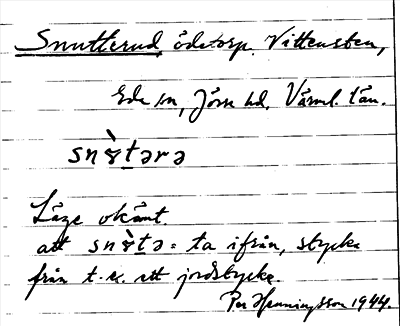 Snutterud, ödetorp, Vittensten,
Eda sn, Jösse hd, Värml. län.
sn 8̀t̲ərə
Läge okänt.
att sn8̀t̲ə = ta ifrån, stycka
från t. ex. ett jordstycke.
Per Henningsson 1944.